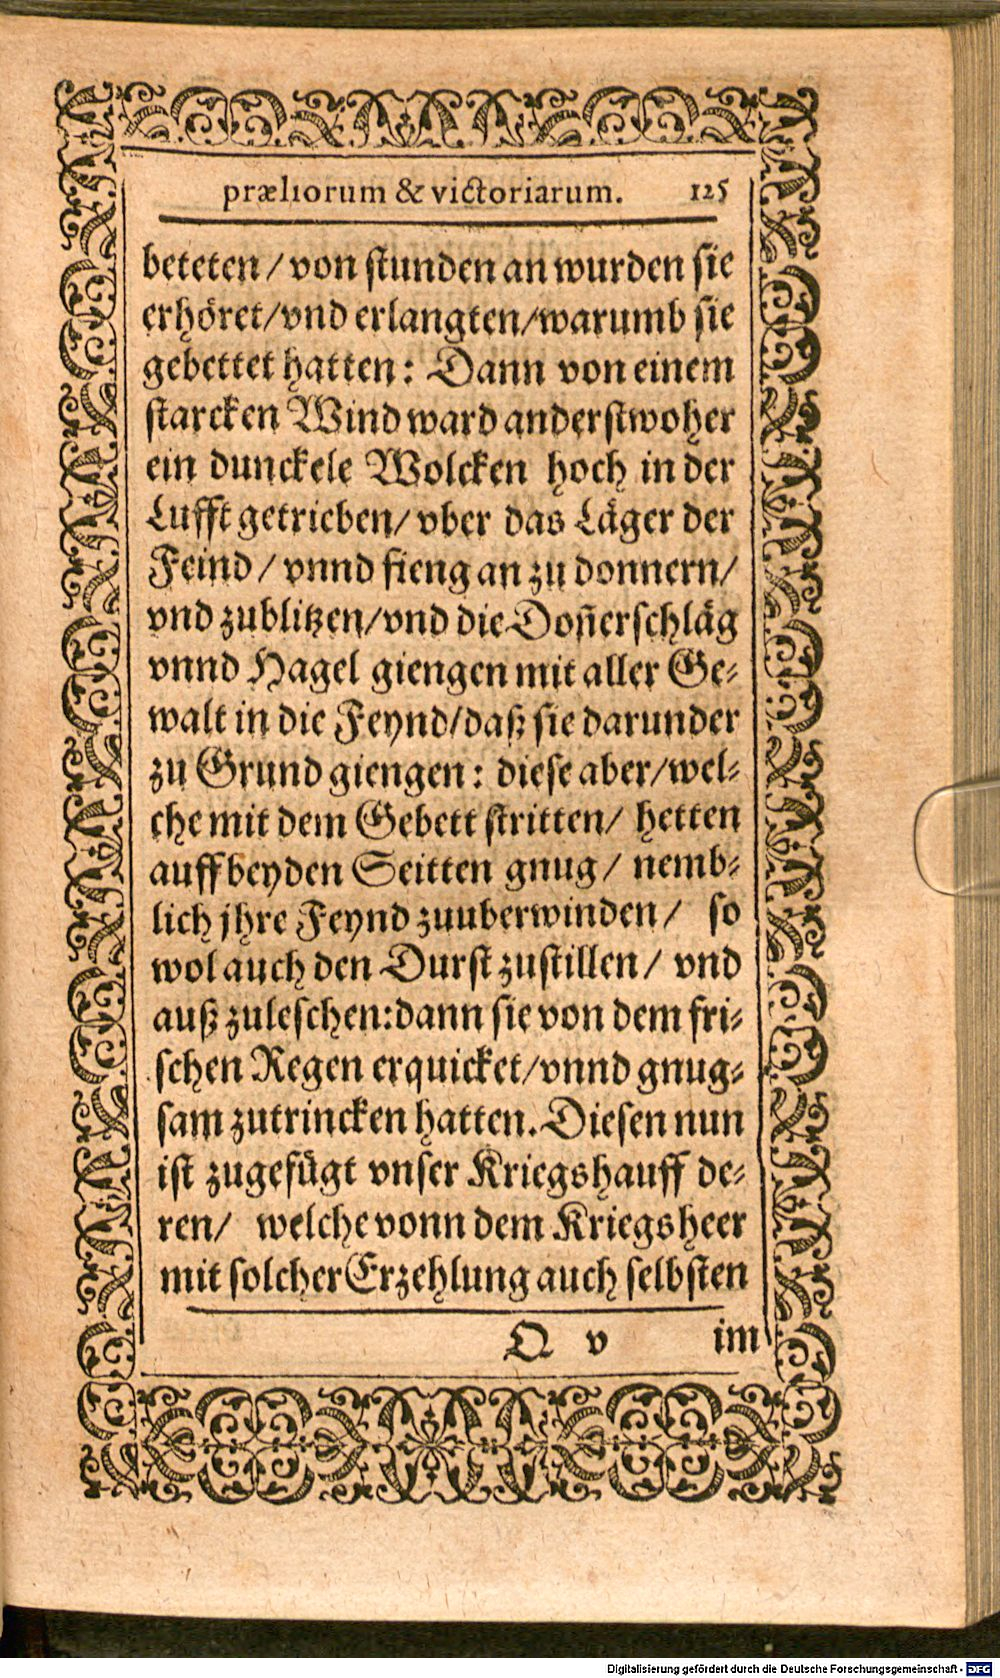 præliorum & victoriarum. 125
beteten / von stunden an wurden sie
erhöret/vnd erlangten/warumb sie
gebettet hatten: Dann von einem
starcken Wind ward anderstwoher
ein dunckele Wolcken hoch in der
Lufft getrieben/ vber das Läger der
Feind / vnnd fieng an zu donnern/
vnd zublitzen/vnd die Don̄erschläg
vnnd Hagel giengen mit aller Ge-
walt in die Feynd/daß sie darunder
zu Grund giengen: diese aber/wel-
che mit dem Gebett stritten/ hetten
auff beyden Seitten gnug / nemb-
lich jhre Feynd zuuberwinden/ so
wol auch den Durst zustillen/ vnd
auß zuleschen: dann sie von dem fri-
schen Regen erquicket/vnnd gnug-
sam zutrincken hatten. Diesen nun
ist zugefügt vnser Kriegshauff de-
ren/ welche vonn dem Kriegsheer
mit solcher Erzehlung auch selbsten
Q v im
Digitalisierung gefördert durch die Deutsche Forschungsgemeinschaft - DFG